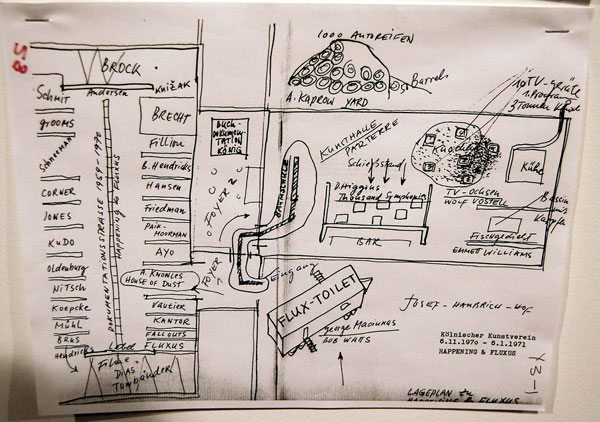 BROCK
Andersen
KNIŽAK
Schmit
GROOMS
Schneeman
CORNER
JONES
KuDO
Oldenburg
NiTSCH
Koepcke
MÜHL
BRUS
Hendricks
DOKUMENTATIONSSTRASSE 1959-1970
HAPPENING & FLUXUS
BRECHT
Fillion
B. Hendricks
Hansen
Friedman
PAIK-
MOORMAN
AYO
A. KNOWLES
HOUSE OF DUST
Vautier
KANTOR
FALLOUTS
FLUXUS
Filme
DIAS
Tonbänder
BUCH-
DOKUMEN-
TATION
KÖNIG
FOYER 2
FOYER
BAUMSCHULE
Eingang
1000 AUTOREIFEN
Barrels
A. KAPROW YARD
KUNSTHALLE
PARTERRE
Schießstand
D. Higgins
Thousand Symphonies
BAR
10 TV-Geräte
1. Programm
Knochen
TV-OCHSEN
WOLF VOSTELL
Kühe
Bassin
Fischgedicht
EMMETT WILLIAMS
FLUX-TOILET
George Maciunas
BOB WATTS
JOSEF-HAUBRICH-HOF
Kölnischer Kunstverein
6.11.1970 - 6.1.1971
HAPPENING & FLUXUS
LAGEPLAN zu
HAPPENING & FLUXUS